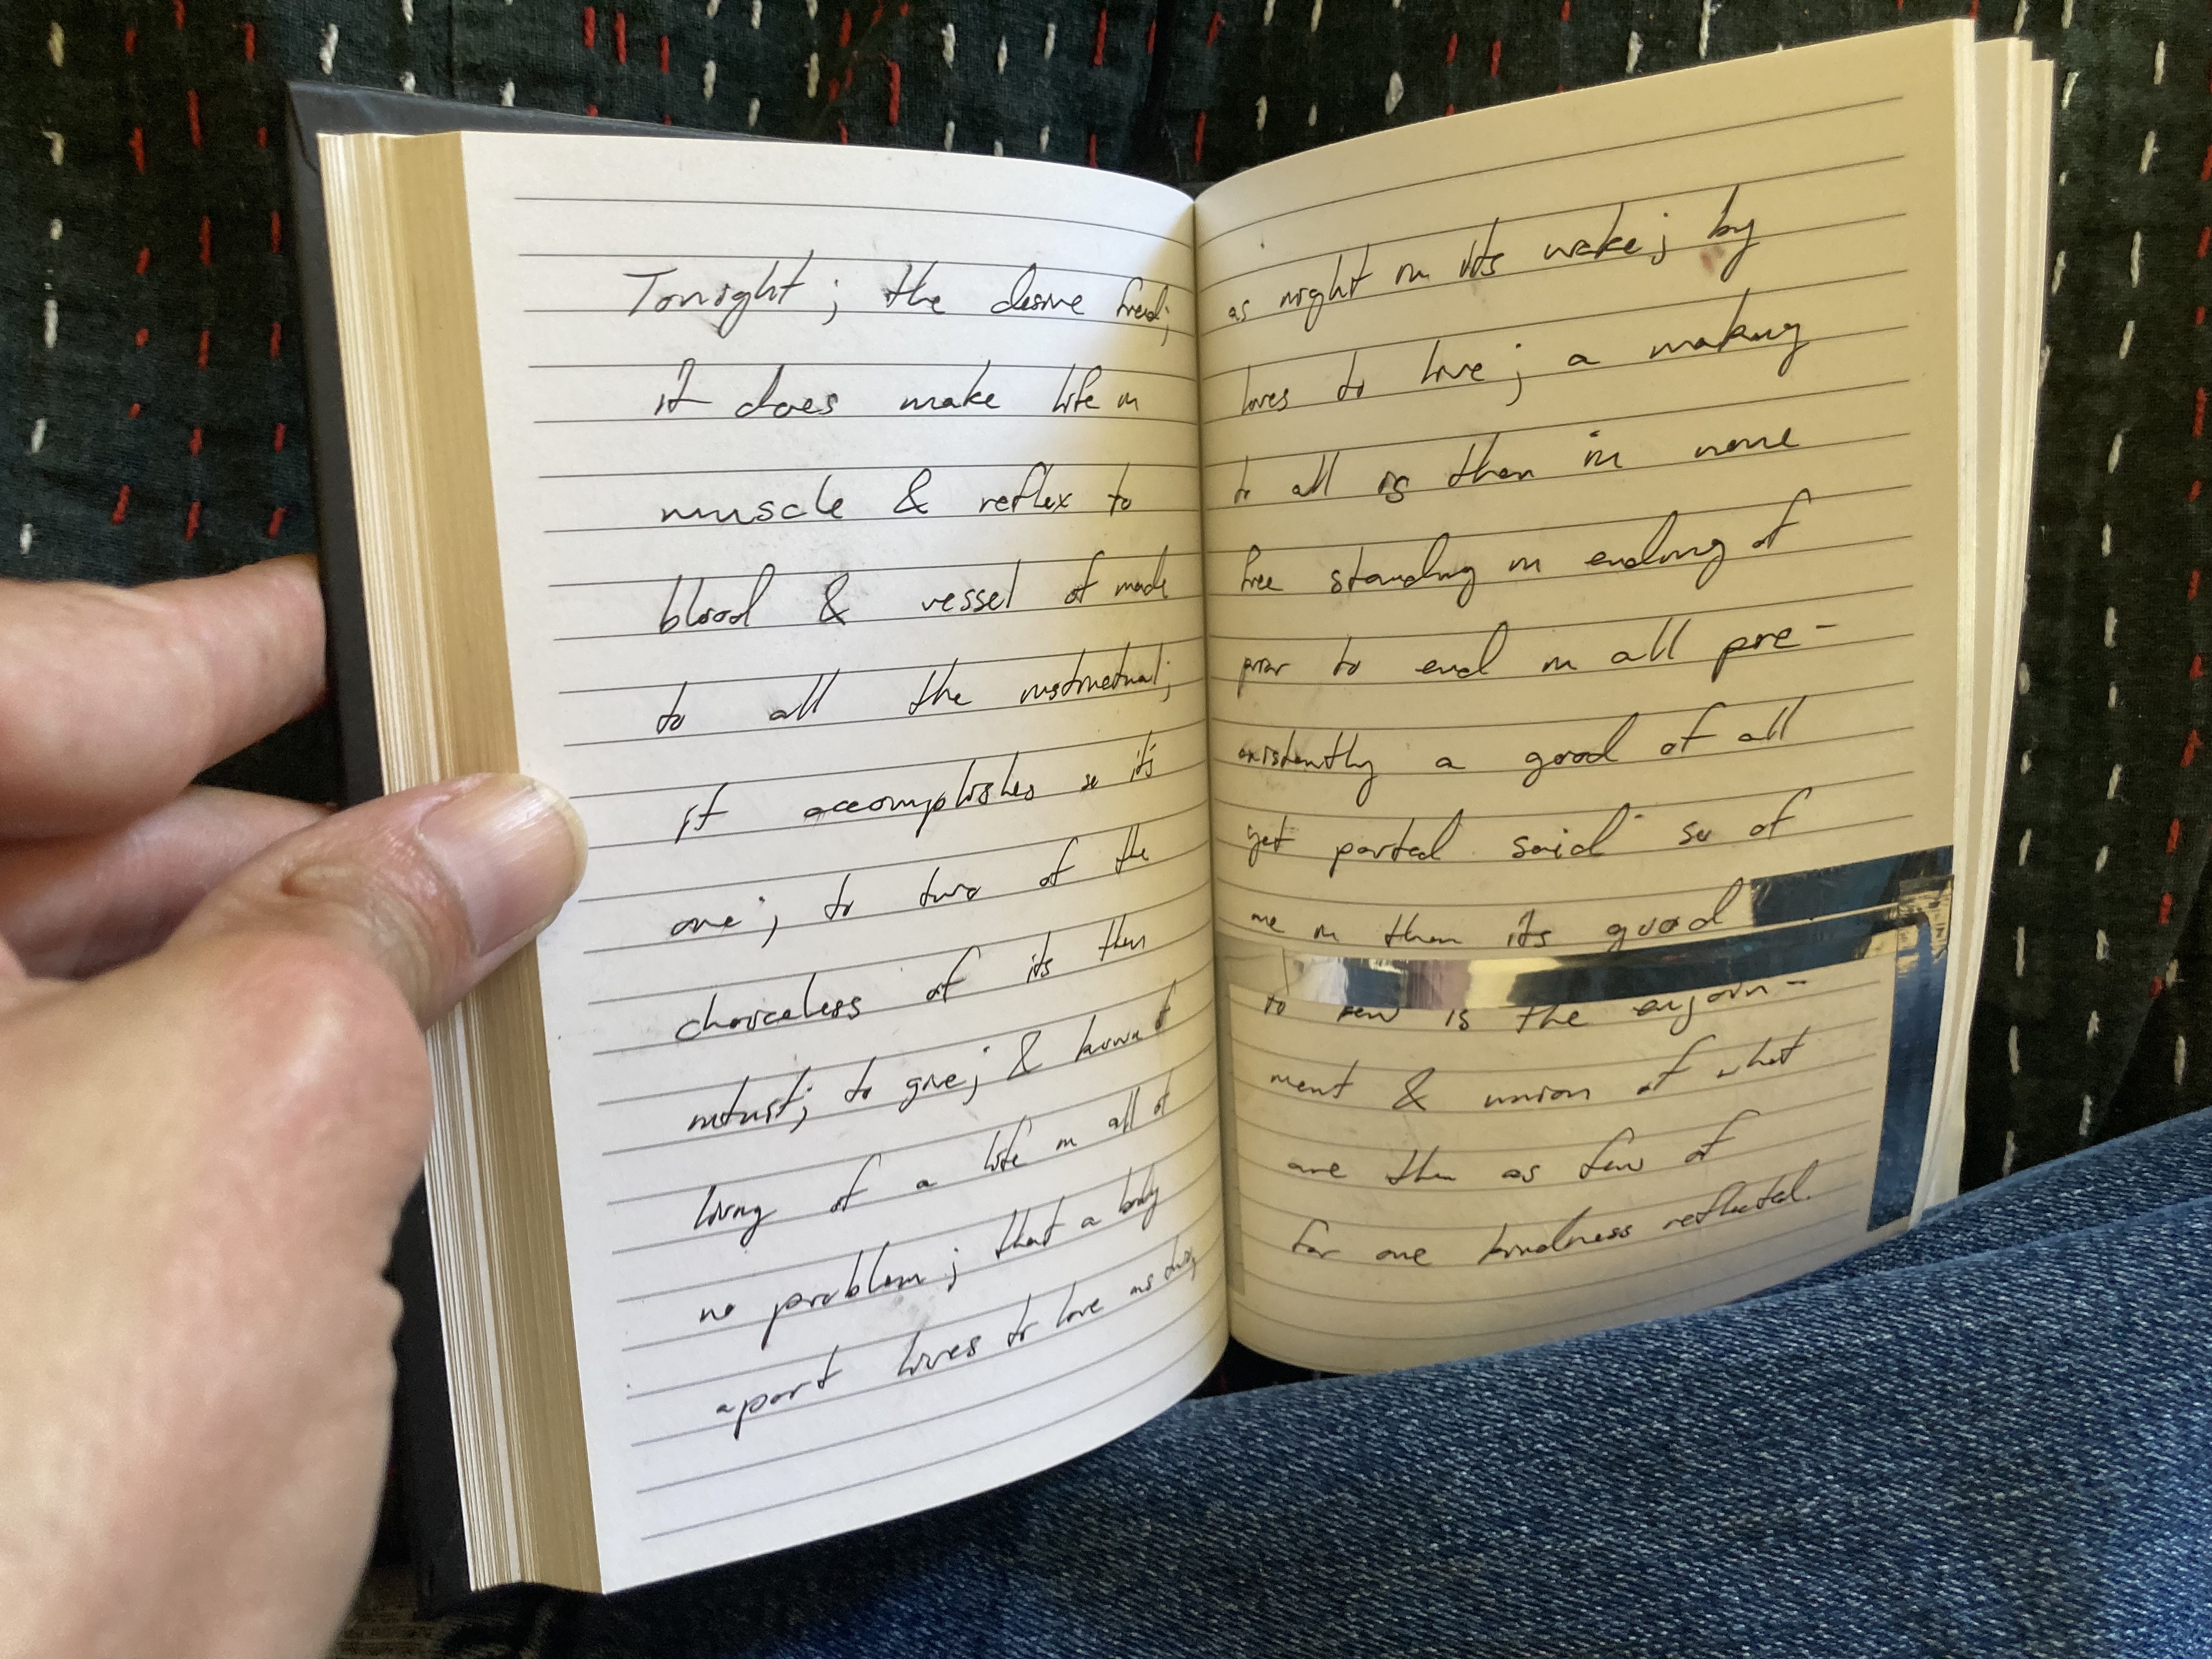 Tonight; the desire freed;
it does make life in
muscle & reflex to
blood & vessel of made
to all the
it accomplishes so its
one; to two of the
choiceless of its then
to give; &
living of a life in all of
no problem; that a body
apart lives to love as day
as night in its wake; by
loves to live; a making
to all is then in none
free standing in ending of
prior to end in all pre-
existently a good of all
yet parted said so of
one in then its good
to few is the enjoin-
ment & union of what
are then as few of
for one kindness reflected.